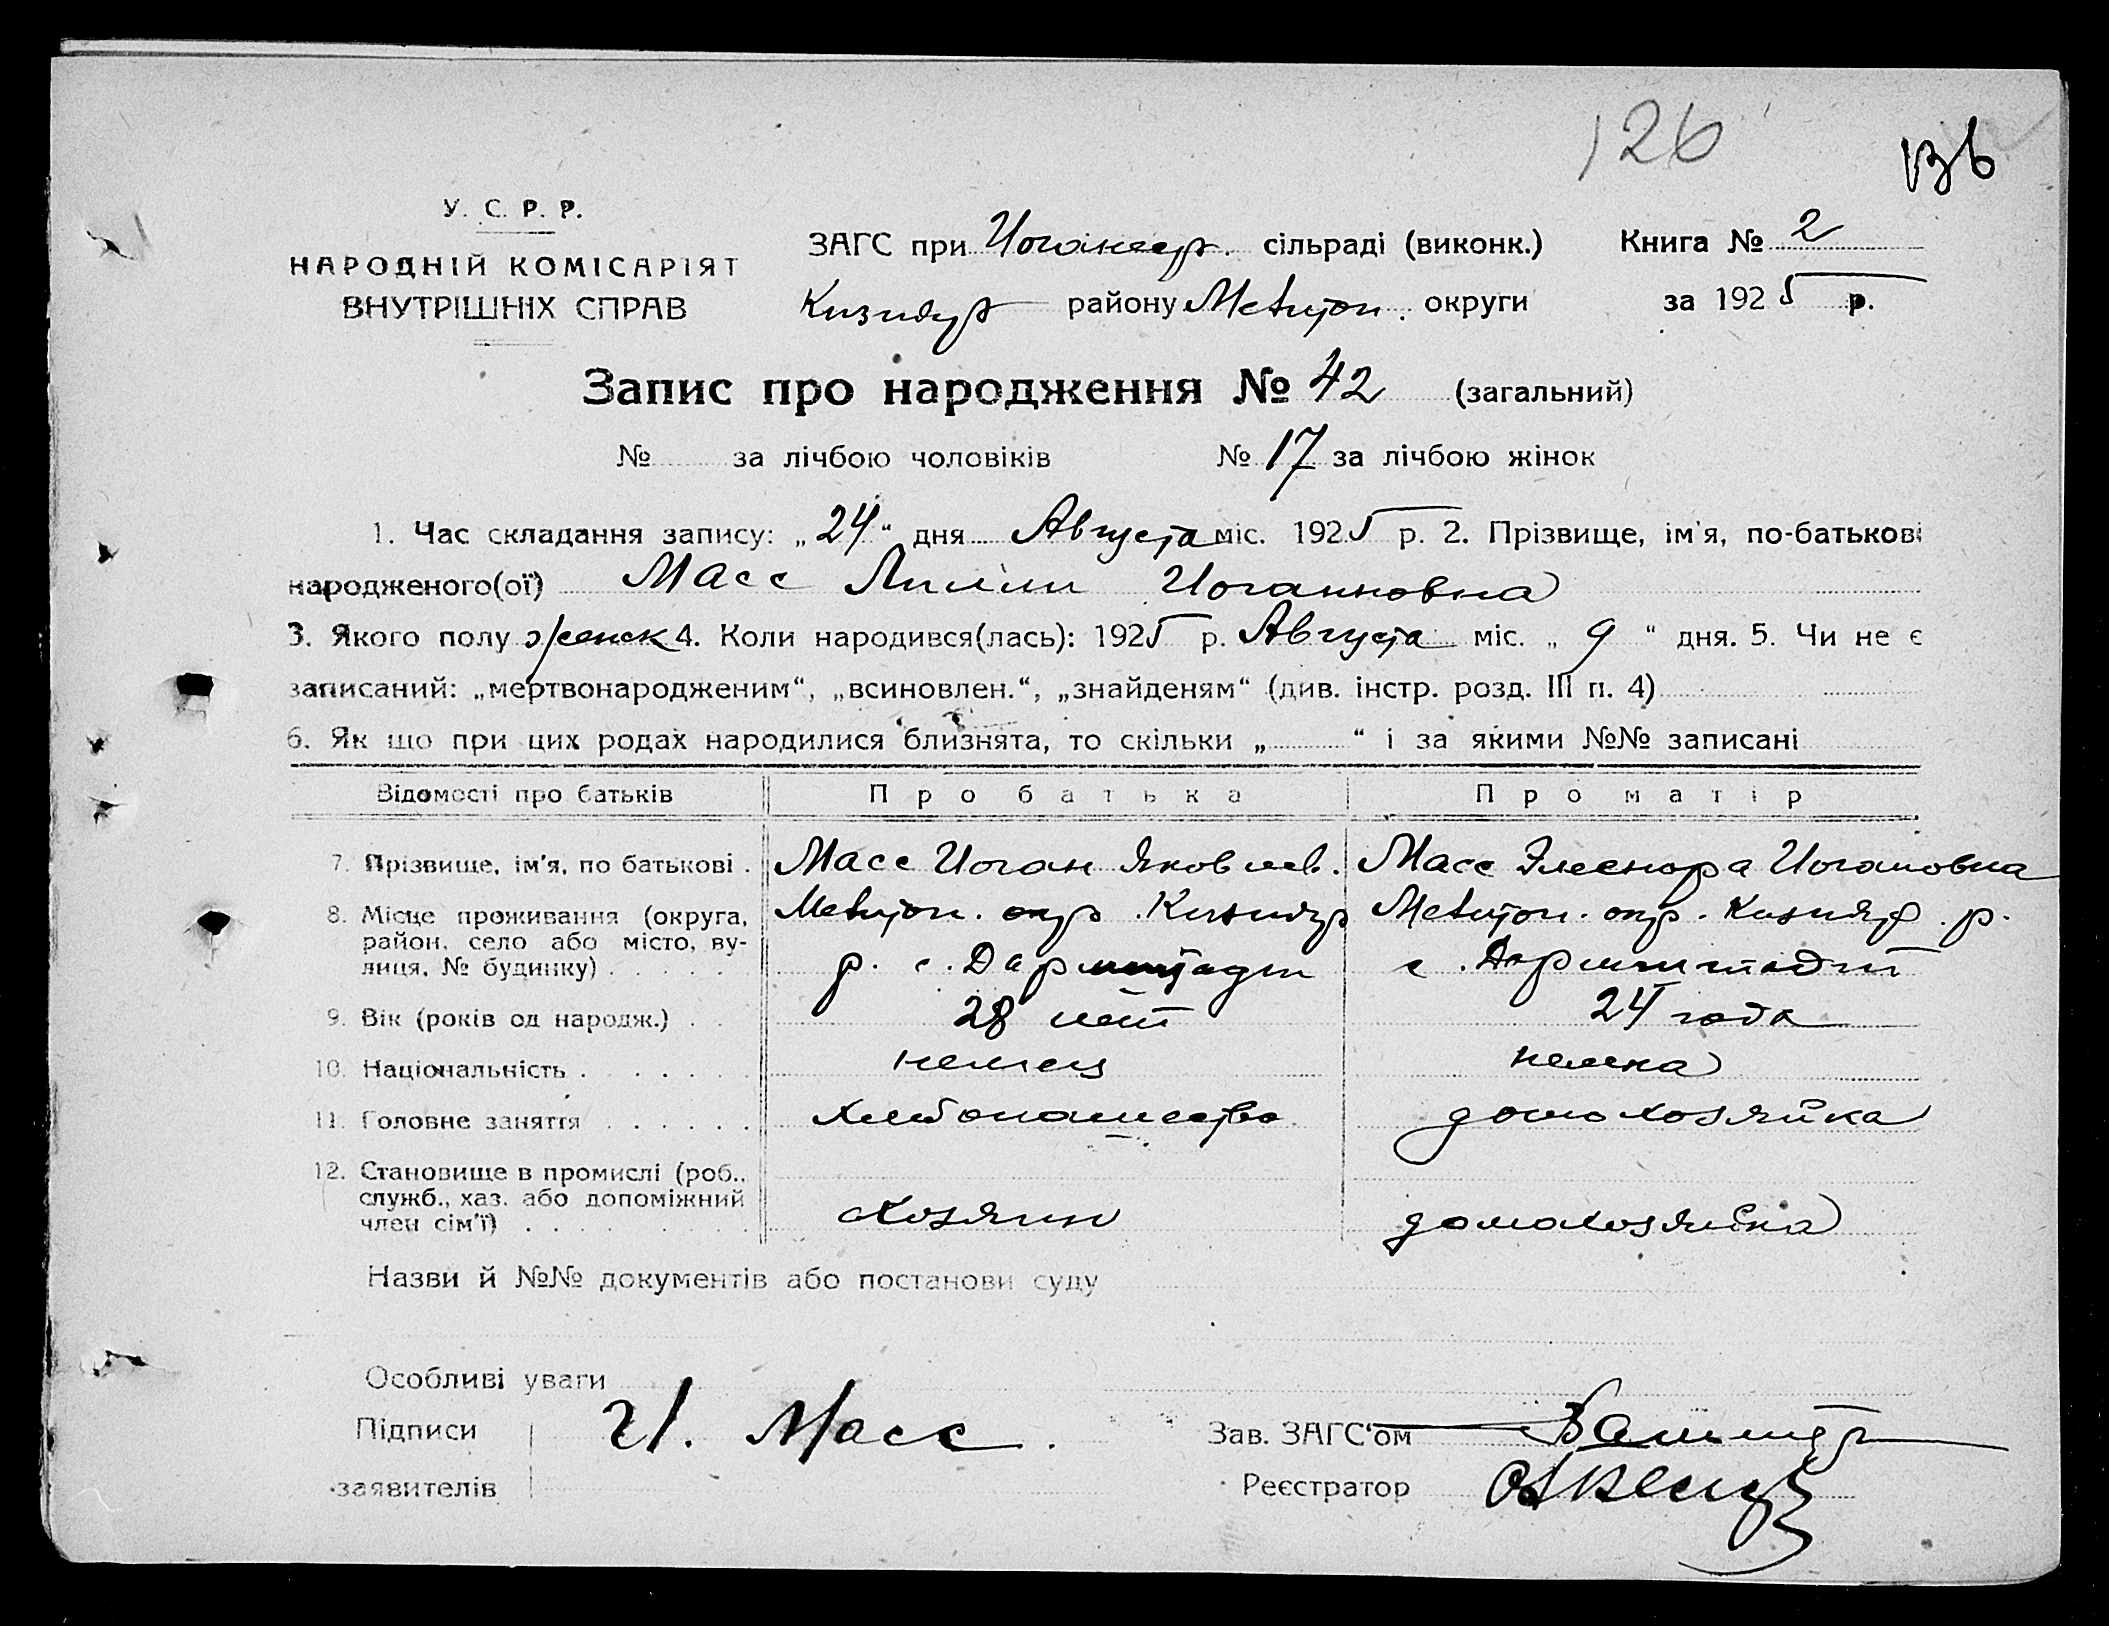 126
136
У. С. Р. Р.
НАРОДНІЙ КОМІСАРІЯТ
ВНУТРІШНІХ СПРАВ
ЗАГС при сільраді (виконк.) Книга № 2
району Мелитоп. округи за 1925 р.
Запис про народження № 42 (загальний)
№ за лічбою чоловіків № 17 за лічбою жінок
1. Час складання запису: „24“ дня Августа міс. 1925 р. 2. Прізвище, ім'я, по-батькові
народженого(ої) Масс Лилли Иоганновна
3. Якого полу женск 4. Коли народився(лась): 1925 р. Августа міс. „9“ дня. 5. Чи не є
записаний: „мертвонародженим“, „всиновлен.“, „знайденям“ (див. інстр. розд. III п. 4)
6. Як що при цих родах народилися близнята, то скільки „ “ і за якими №№ записані
Відомості про батьків Про батька Про матір
7. Прізвище, ім'я, по батькові . Масс Иоган Яковлев. Масс Элеенора Иогановна
8. Місце проживання (округа, Мелитоп. окр. Кизияр Мелитоп. окр. Кизияр. р.
район, село або місто, ву- р. с. Дармштадт с. Дармштадт
лиця, № будинку) . . . . .
9. Вік (років од народж.) . . 28 лет 24 года
10. Національність . . . . . . немец немка
11. Головне заняття . . . . . . хлебопашество домохозяйка
12. Становище в промислі (роб.,
служб., хаз. або допоміжний хозяин домохозяйка
член сім'ї) . . . . . . .
Назви й №№ документів або постанови суду
Особливі уваги
Підписи И. Масс. Зав. ЗАГС'ом
заявителів Реєстратор